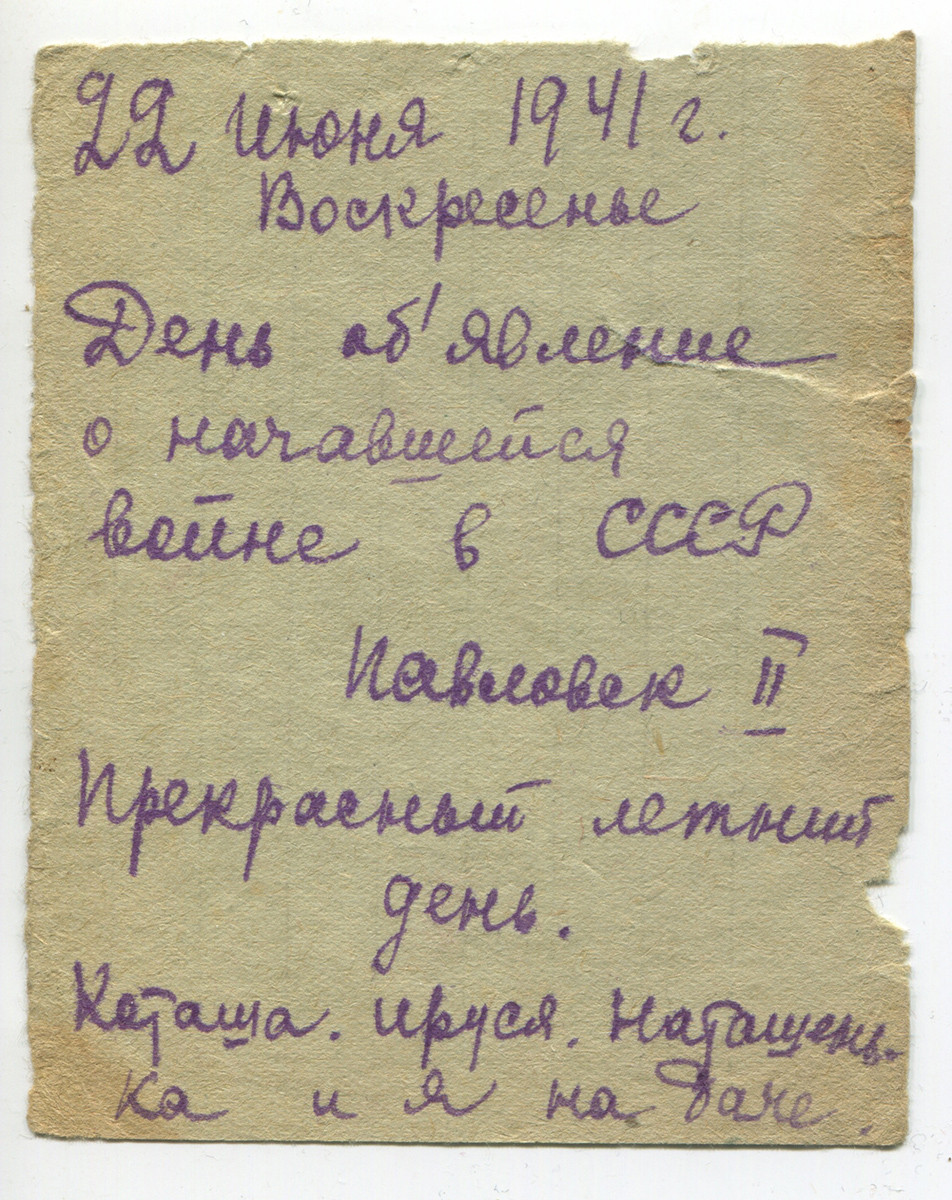 22 июня 1941 г.
Воскресенье
День об'явление
о начавшейся
войне в СССР
Павловск II
Прекрасный летний
день.
Каташа. Ируся. Наташень-
ка и я на даче.